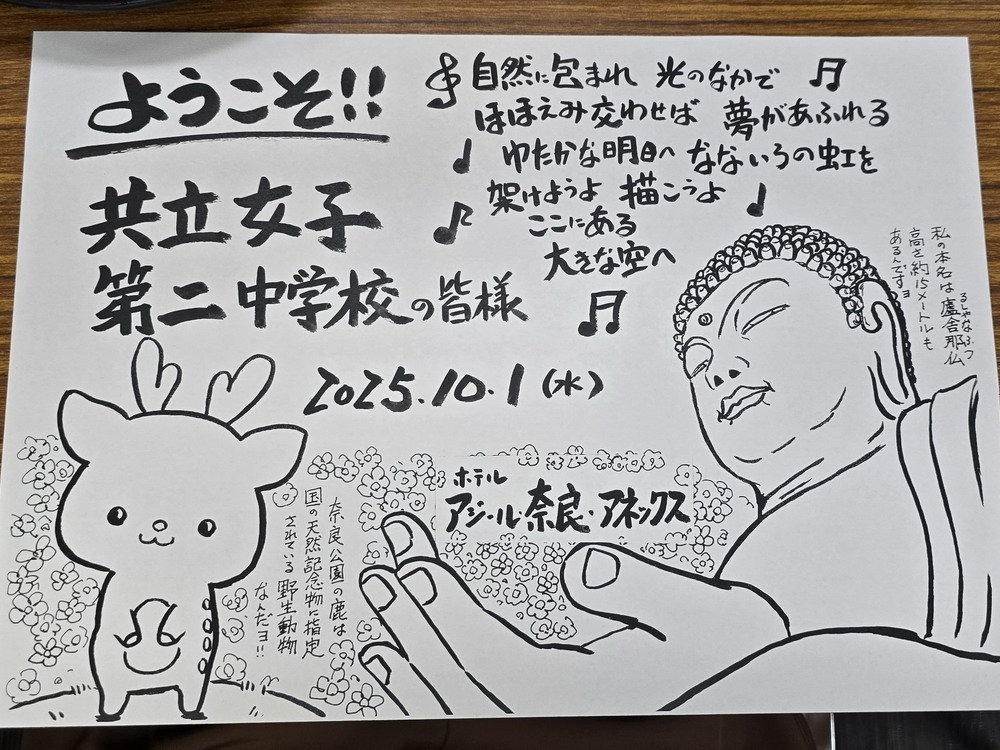 ようこそ!!
共立女子
第二中学校の皆様
2025.10.1(水)
自然に包まれ 光のなかで
ほほえみ交わせば 夢があふれる
ゆたかな明日へ なないろの虹を
架けようよ 描こうよ
ここにある
大きな空へ
私の本名は盧舎那仏
るしゃなぶつ
高さ約15メートルも
あるんですヨ
ホテル
アジール・奈良・アネックス
奈良公園の鹿は
国の天然記念物に指定
されている 野生動物
なんだヨ!!